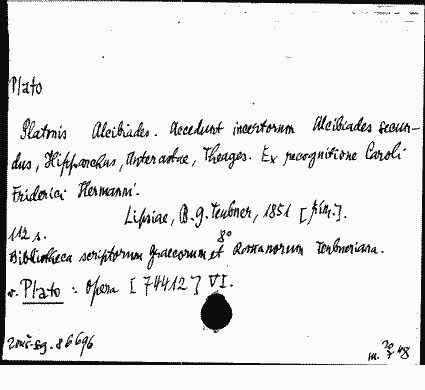 Plato
Platonis Alcibiades. Accedunt incertorum Alcibiades secun-
dus, Hipparchus, Anterastae, Theages. Ex recognitione Caroli
Friderici Hermanni.
Lipsiae, B.G. Teubner, 1851 [přím.].
112 s. 8°
Bibliotheca scriptorum Graecorum et Romanorum Teubneriana.
v. Plato : Opera [74412] VI.
86696
m. 20 7 48